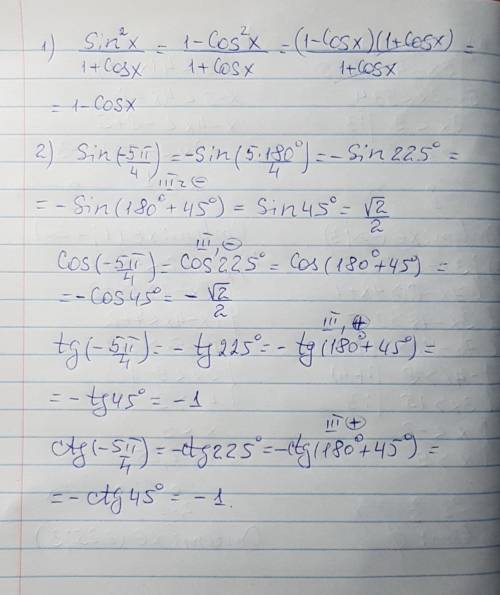 1) Sin²x/(1+Cosx) = (1-Cos²x)/(1+Cosx) = (1-Cosx)(1+Cosx)/(1+Cosx) =
= 1-Cosx
2) Sin(-5π/4) = -Sin(5·180°/4) = -Sin225° =
III г ⊖
= -Sin(180°+45°) = Sin45° = √2/2
III, ⊖
Cos(-5π/4) = Cos225° = Cos(180°+45°) =
= -Cos45° = -√2/2
III, ⊕
tg(-5π/4) = -tg225° = -tg(180°+45°) =
= -tg45° = -1
III ⊕
ctg(-5π/4) = -ctg225° = -ctg(180°+45°) =
= -ctg45° = -1.